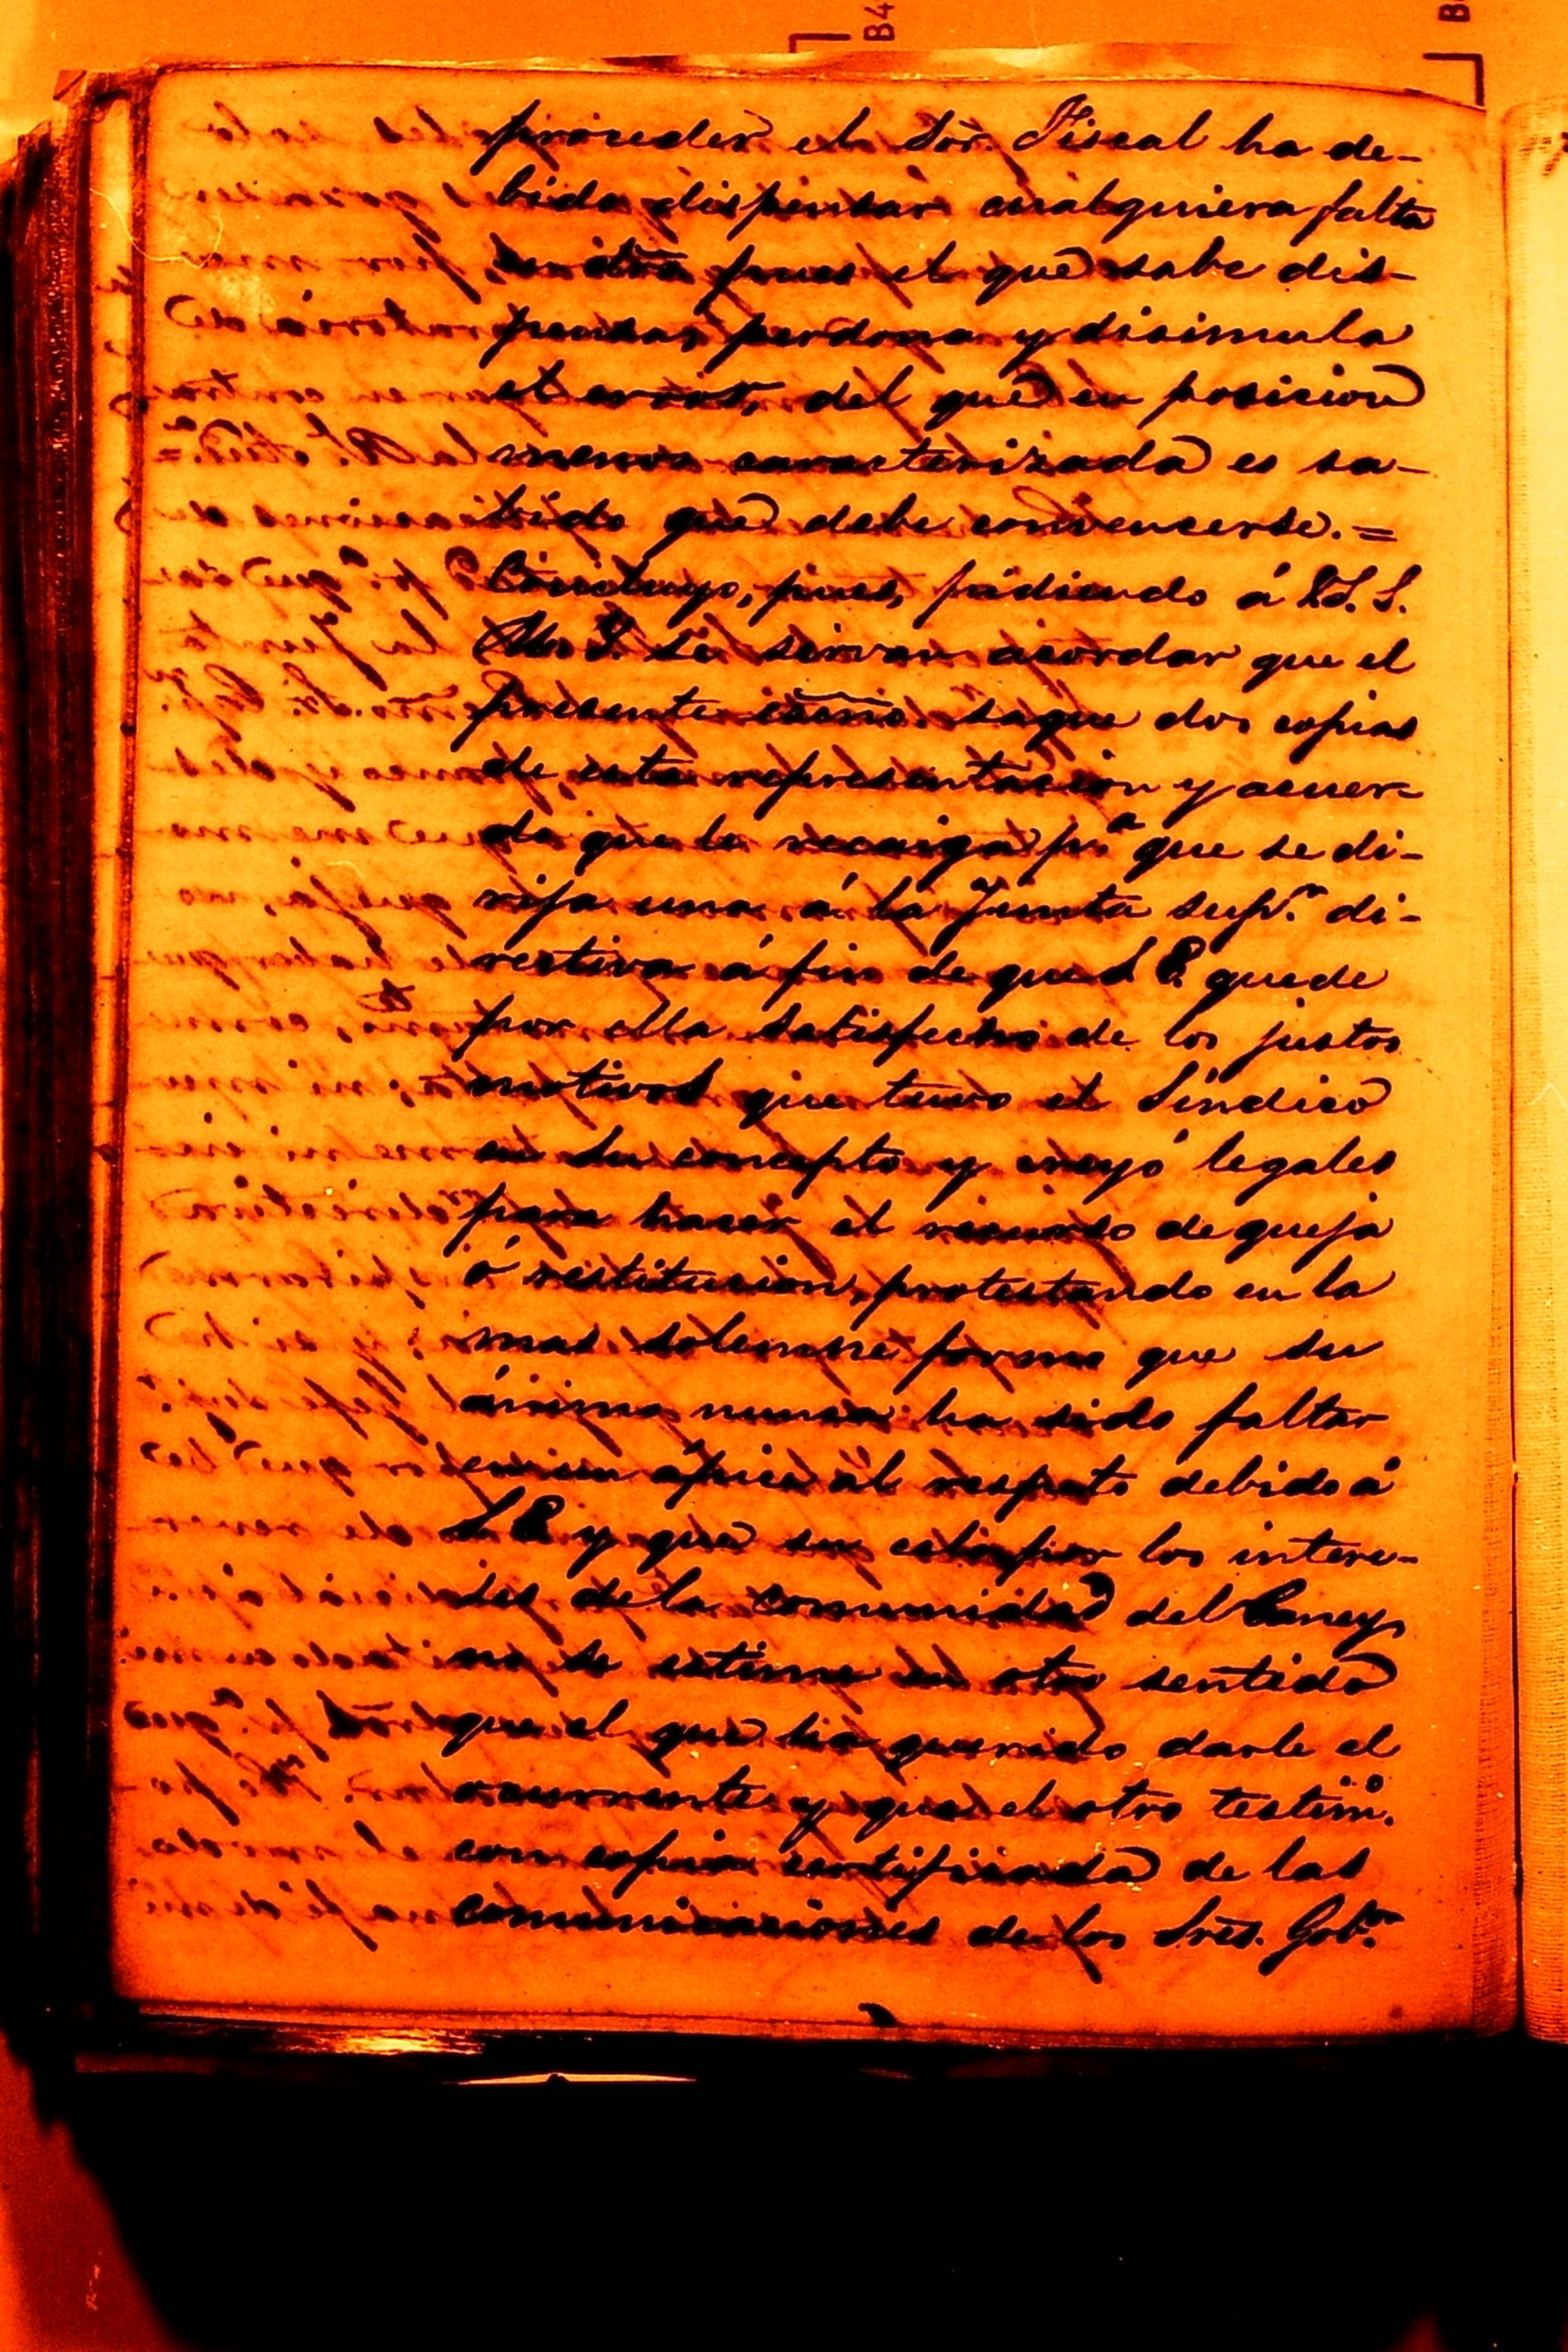 B4
proceder el Sor. Fiscal ha de-
bido dispensar cualquiera falta
en otro pues el que sabe dis-
pensar, perdona y disimula
el error, del que en posicion
menos caracterizada es sa-
bido que debe convencerse.=
Concluyo, pues, pidiendo á V.S.S.
M. Y. se sirvan acordar que el
presente essno. saque dos copias
de esta representacion y acuer-
do que le recaiga pª que se di-
rija una á la Junta supr. di-
rectiva á fin de que S E. quede
por ella satisfecho de los justos
motivos que tuvo el Síndico
en su concepto y creyó legales
para hacer el recurso de queja
ó restitucion, protestando en la
mas solemne forma que su
ánimo nunca ha sido faltar
en un ápice al respeto debido á
S E. y que su celo por los intere-
ses de la comunidad del Caney
no se estime en otro sentido
que el que ha querido darle el
ocurrente y que el otro testimº.
con copia certificada de las
comunicaciones de los Sres. Gobor